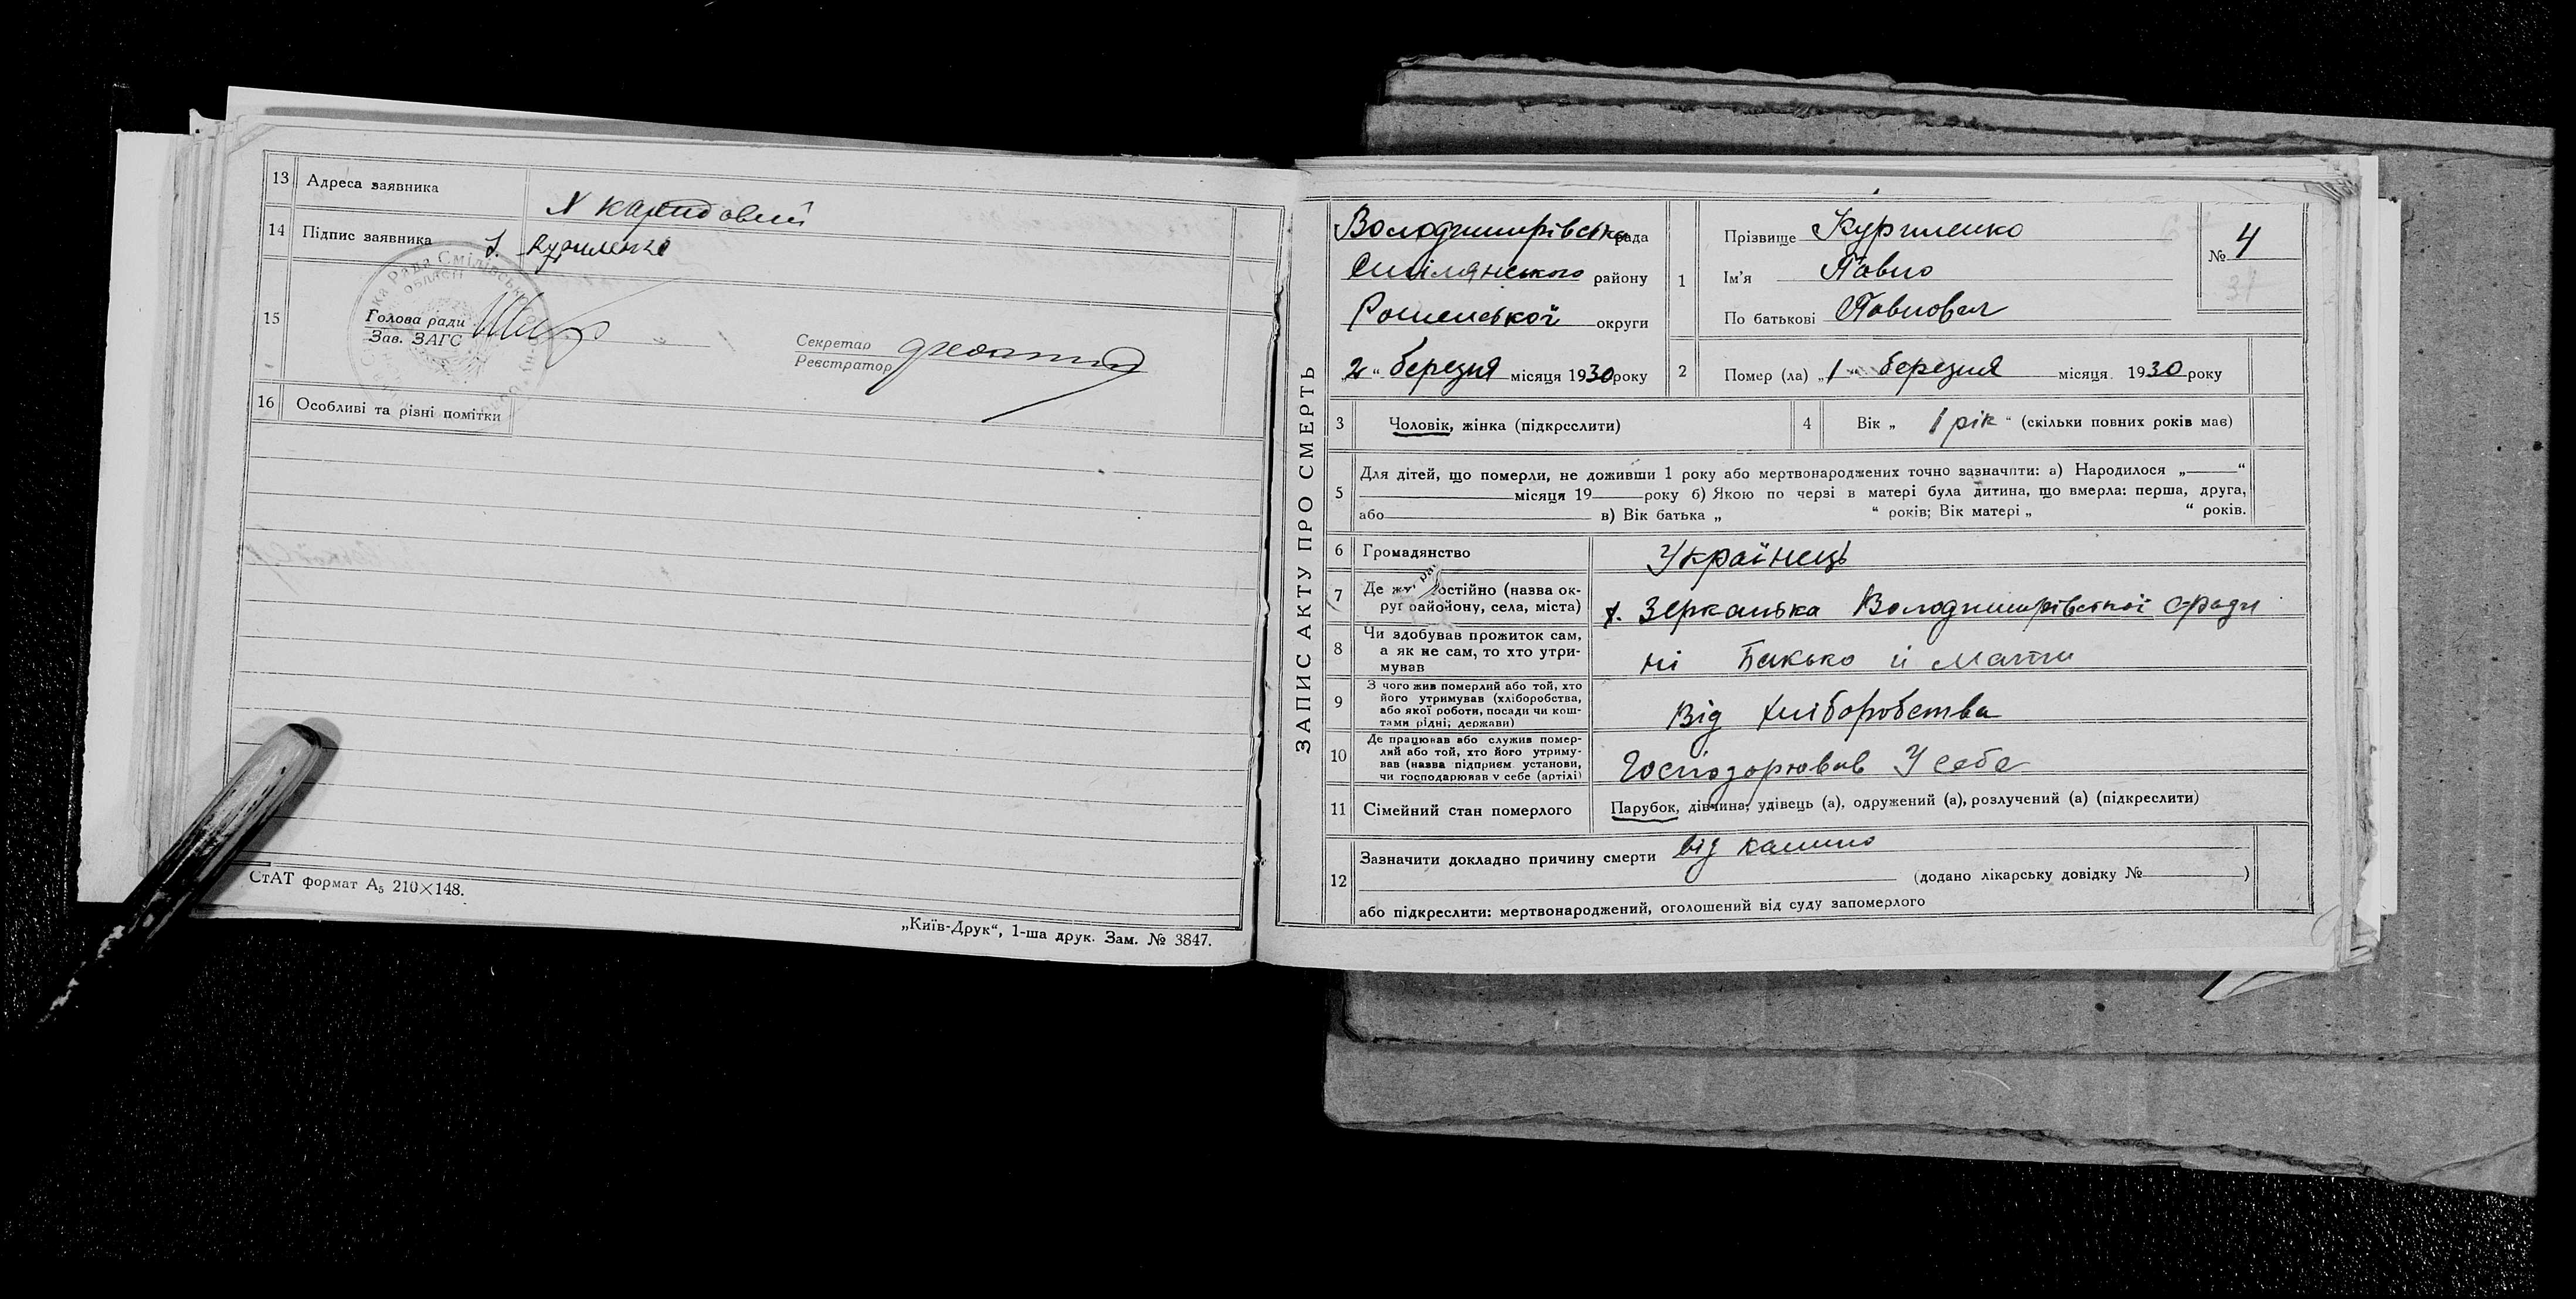 13 Адреса заявника
14 Підпис заявника
15
Голова ради
Зав. ЗАГС
Секретар
Реєстратор
16 Особливі та різні помітки
СтАТ формат А₅ 210×148.
„Київ-Друк“, 1-ша друк. Зам. № 3847.
ЗАПИС АКТУ ПРО СМЕРТЬ
Володимирівська рада
Смілянського району
Роменської округи
„2“ березня місяця 1930 року
1
Прізвище Куриленко
Ім'я Павло
По батькові Павлович
№ 4
2 Помер (ла) „1“ березня місяця 1930 року
3 Чоловік, жінка (підкреслити)
4 Вік „ 1 рік “ (скільки повних років має)
5 Для дітей, що померли, не доживши 1 року або мертвонароджених точно зазначити: а) Народилося „ “
місяця 19 року б) Якою по черзі в матері була дитина, що вмерла: перша, друга,
або в) Вік батька „ “ років; Вік матері „ “ років.
6 Громадянство Українець
7 Де постійно (назва ок-
руг районону, села, міста) х. Зеркалька Володимирівської с-ради
8 Чи здобував прожиток сам,
а як не сам, то хто утри-
мував
ні Батько й Мати
9 З чого жив померлий або той, хто
його утримував (хліборобства,
або якої роботи, посади чи кош-
тами рідні, держави)
Від хліборобства
10 Де працював або служив помер-
лий або той, хто його утриму-
вав (назва підприєм. установи,
чи господарював у себе (артілі)
Господорював У себе
11 Сімейний стан померлого Парубок, дівчина, удівець (а), одружений (а), розлучений (а) (підкреслити)
12 Зазначити докладно причину смерти від кашлю
(додано лікарську довідку № )
або підкреслити: мертвонароджений, оголошений від суду запомерлого